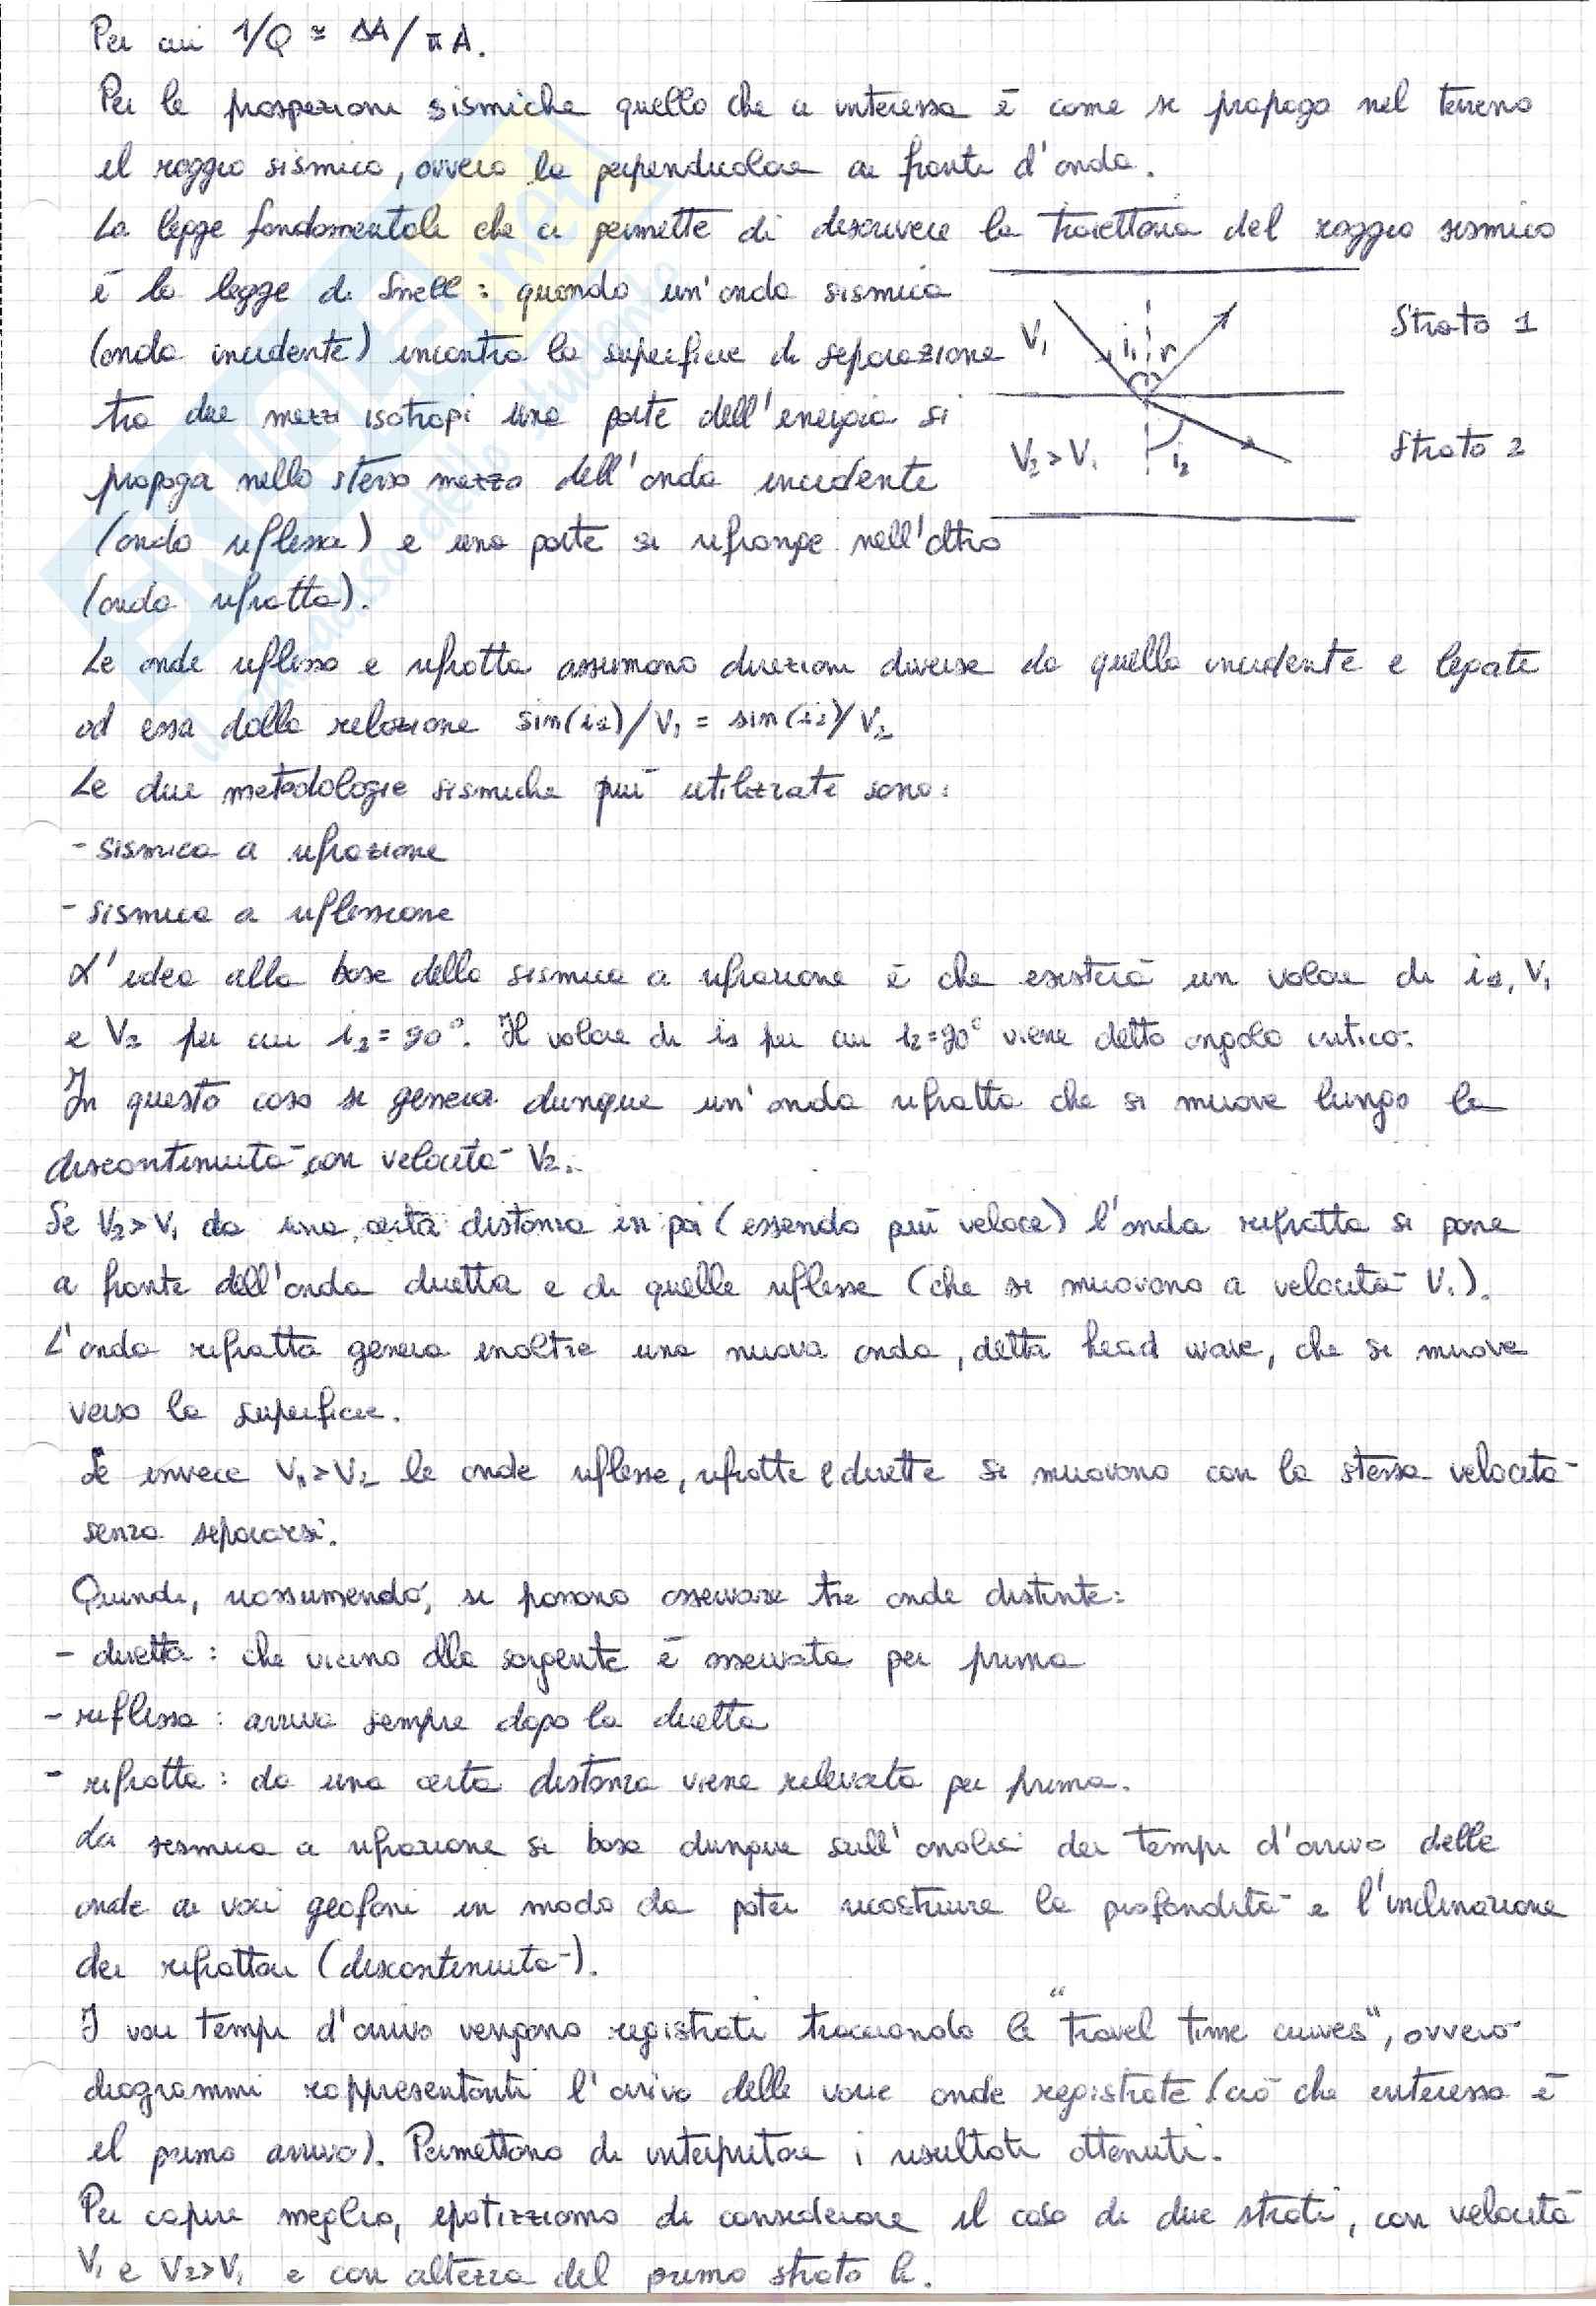 Per cui 1/Q ≃ ΔA/πA.
Per le prospezioni sismiche quello che ci interessa è come si propaga nel terreno
il raggio sismico, ovvero la perpendicolare ai fronti d'onda.
La legge fondamentale che ci permette di descrivere la traiettoria del raggio sismico
è la legge di Snell: quando un'onda sismica
(onda incidente) incontra la superficie di separazione
tra due mezzi isotropi una parte dell'energia si
propaga nello stesso mezzo dell'onda incidente
(onda riflessa) e una parte si rifrange nell'altro
(onda rifratta).
V₁ i₁ r Strato 1
V₂>V₁ i₂ Strato 2
Le onde riflessa e rifratta assumono direzioni diverse da quella incidente e legate
ad essa dalla relazione sin(i₁)/V₁ = sin(i₂)/V₂
Le due metodologie sismiche più utilizzate sono:
- sismica a rifrazione
- sismica a riflessione
L'idea alla base della sismica a rifrazione è che esisterà un valore di i₁, V₁
e V₂ per cui i₂=90°. Il valore di i₁ per cui i₂=90° viene detto angolo critico.
In questo caso si genera dunque un'onda rifratta che si muove lungo la
discontinuità con velocità V₂.
Se V₂>V₁ da una certa distanza in poi (essendo più veloce) l'onda rifratta si pone
a fronte dell'onda diretta e di quelle riflesse (che si muovono a velocità V₁).
L'onda rifratta genera inoltre una nuova onda, detta head wave, che si muove
verso la superficie.
Se invece V₁>V₂ le onde riflesse, rifratte e dirette si muovono con la stessa velocità
senza separarsi.
Quindi, riassumendo, si possono osservare tre onde distinte:
- diretta: che vicino alla sorgente è osservata per prima
- riflessa: arriva sempre dopo la diretta
- rifratta: da una certa distanza viene rilevata per prima.
La sismica a rifrazione si basa dunque sull'analisi dei tempi d'arrivo delle
onde ai vari geofoni in modo da poter ricostruire la profondità e l'inclinazione
dei rifrattori (discontinuità).
I vari tempi d'arrivo vengono registrati tracciando le "travel time curves", ovvero
diagrammi rappresentanti l'arrivo delle varie onde registrate (ciò che interessa è
il primo arrivo). Permettono di interpretare i risultati ottenuti.
Per capire meglio, ipotizziamo di considerare il caso di due strati, con velocità
V₁ e V₂>V₁ e con altezza del primo strato h.